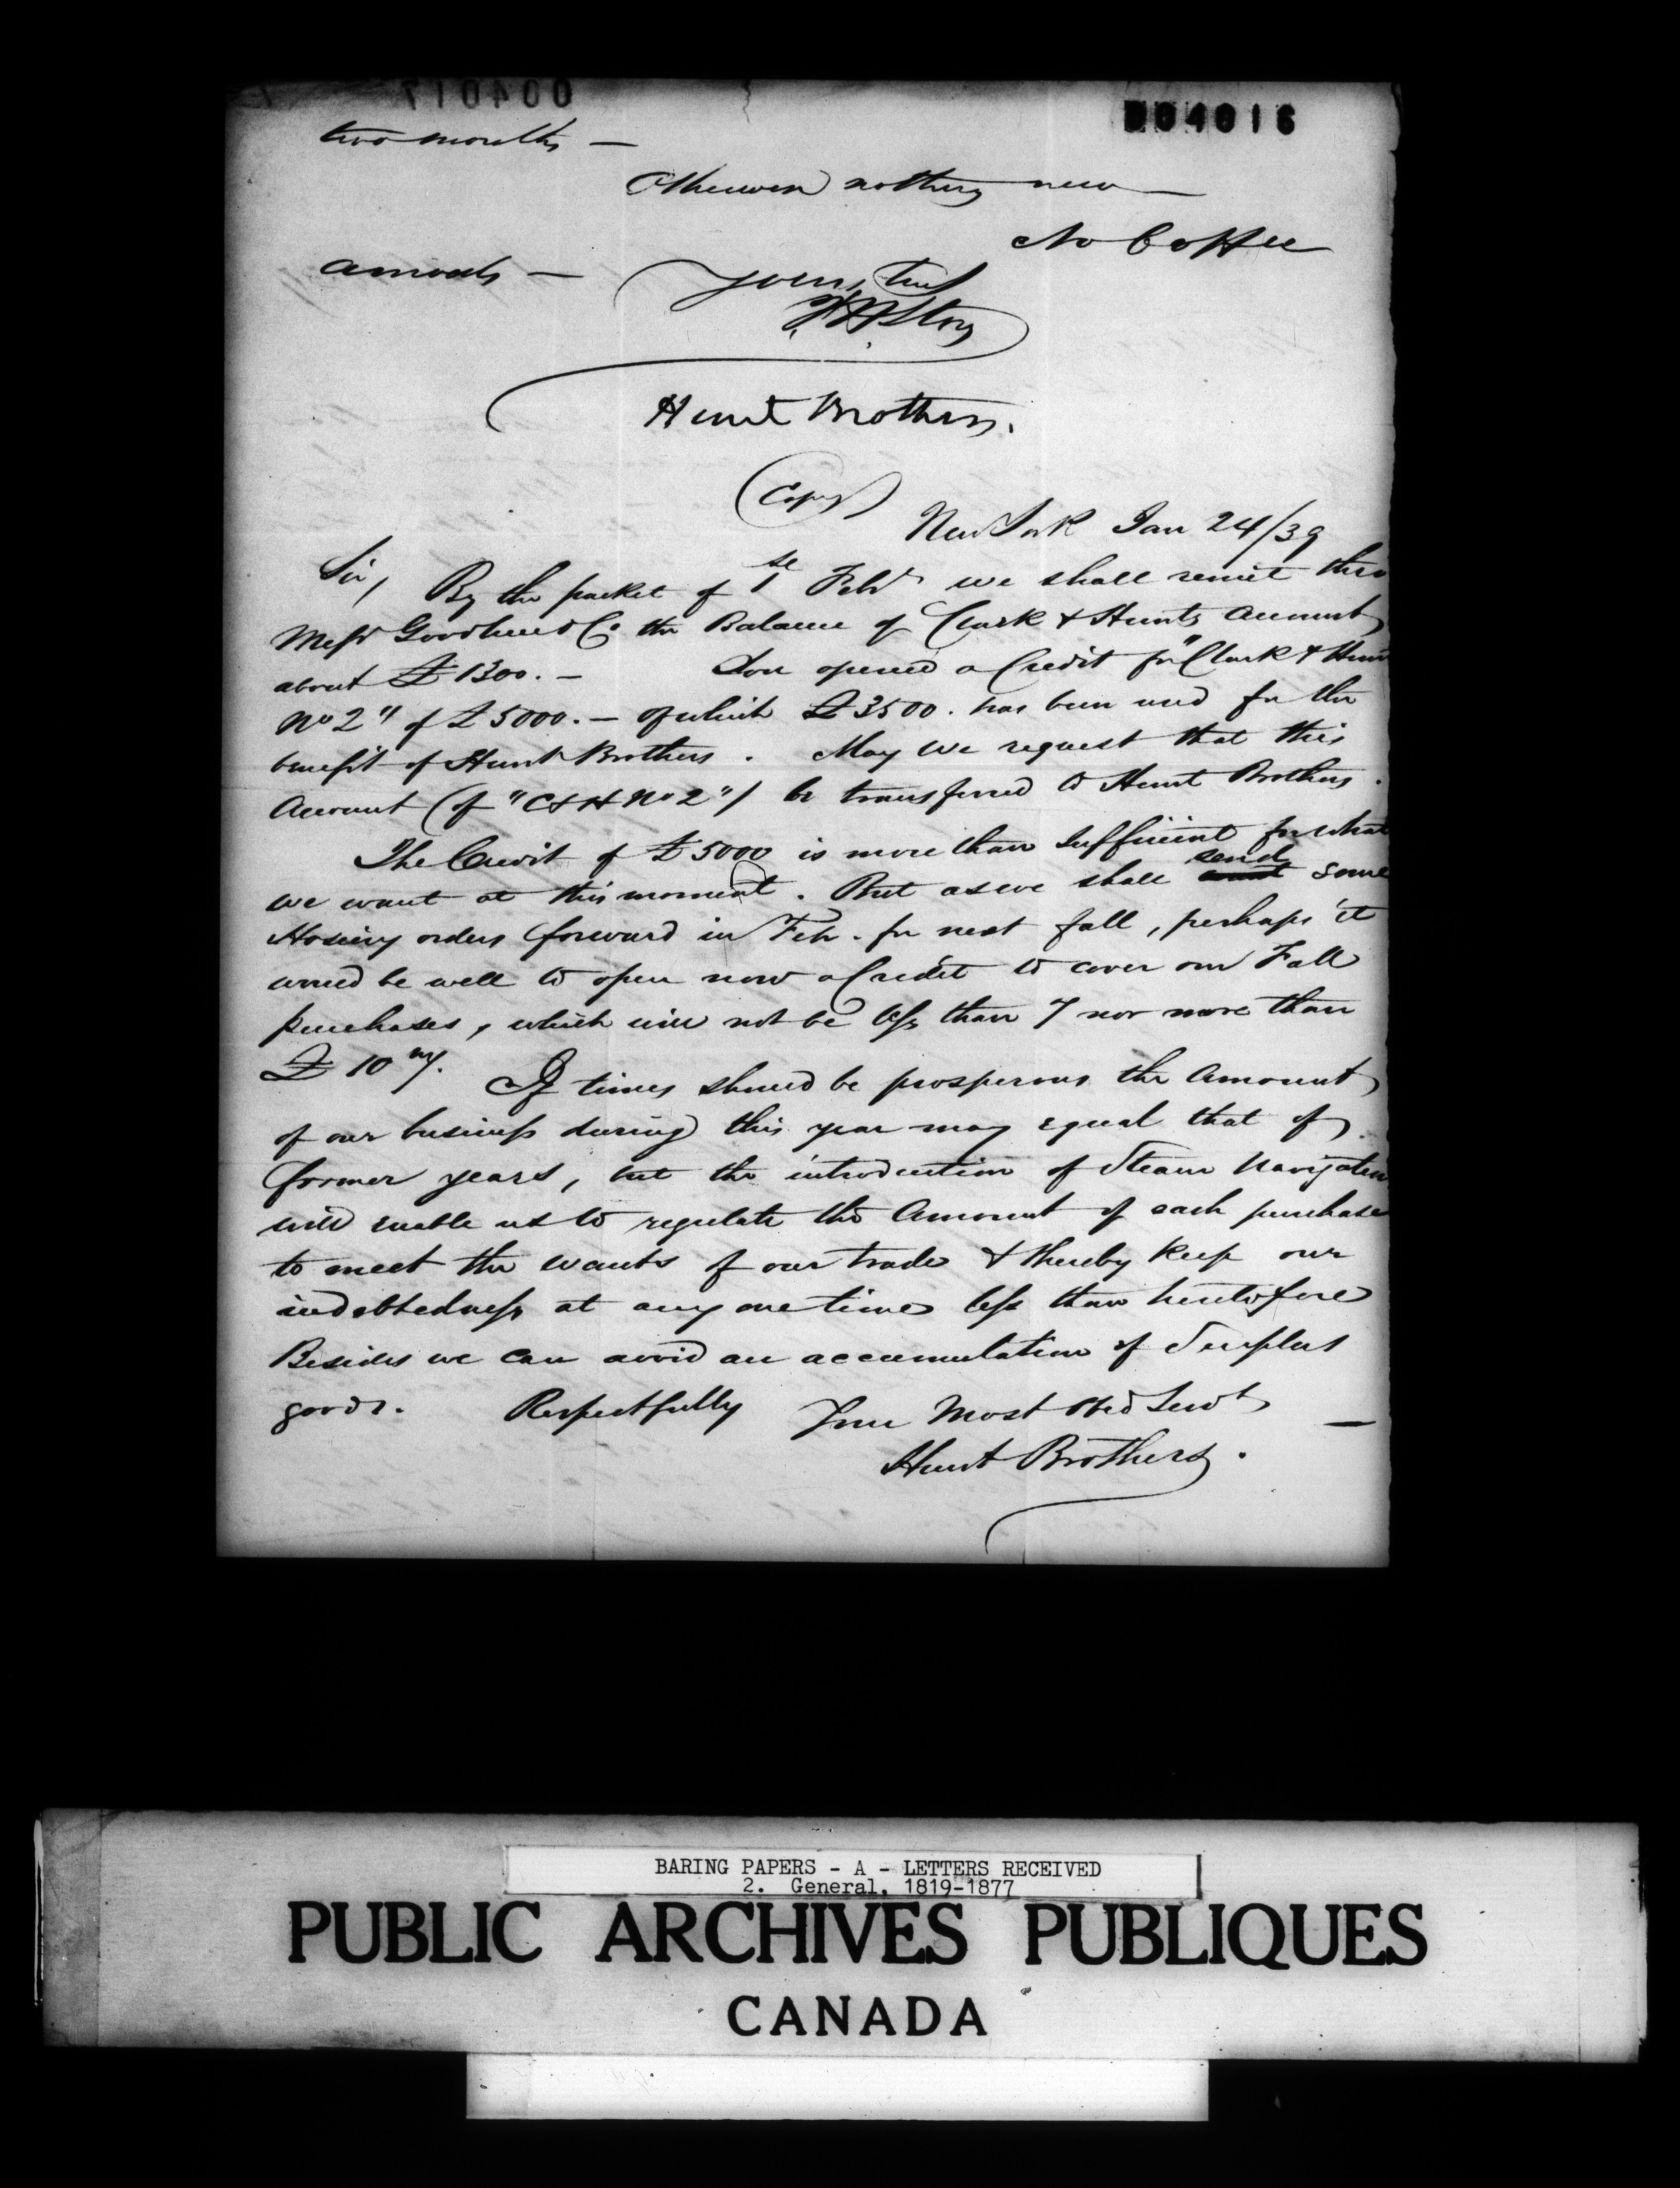 004017
004016
two months —
Otherwise nothing new —
No Coffee
arrivals —
Yours truly
Hunt Brothers.
(Copy)
New York Jan 24/39
Sir, By the packet of 1st Feby we shall remit thro
Messrs Goodhue & Co the Balance of Clark & Hunts Account
about £1300. — You opened a Credit for "Clark & Hunt
No 2" of £5000. — of which £3500. has been used for the
benefit of Hunt Brothers. May we request that this
Account (of "C & H No 2") be transferred to Hunt Brothers.
The Credit of £5000 is more than sufficient for what
we want at this moment. But as we shall send some
Hosiery orders forward in Feb. for next fall, perhaps it
would be well to open now a Credit to cover our Fall
purchases, which will not be less than 7 nor more than
£10 m/. If times should be prosperous the Amount
of our business during this year may equal that of
former years, but the introduction of Steam Navigation
will enable us to regulate the Amount of each purchase
to meet the wants of our trade & thereby keep our
indebtedness at any one time less than heretofore
Besides we can avoid an accumulation of Surplus
goods. Respectfully Your Most Obed Servt —
Hunt Brothers.
BARING PAPERS - A - LETTERS RECEIVED
2. General, 1819-1877
PUBLIC ARCHIVES PUBLIQUES
CANADA